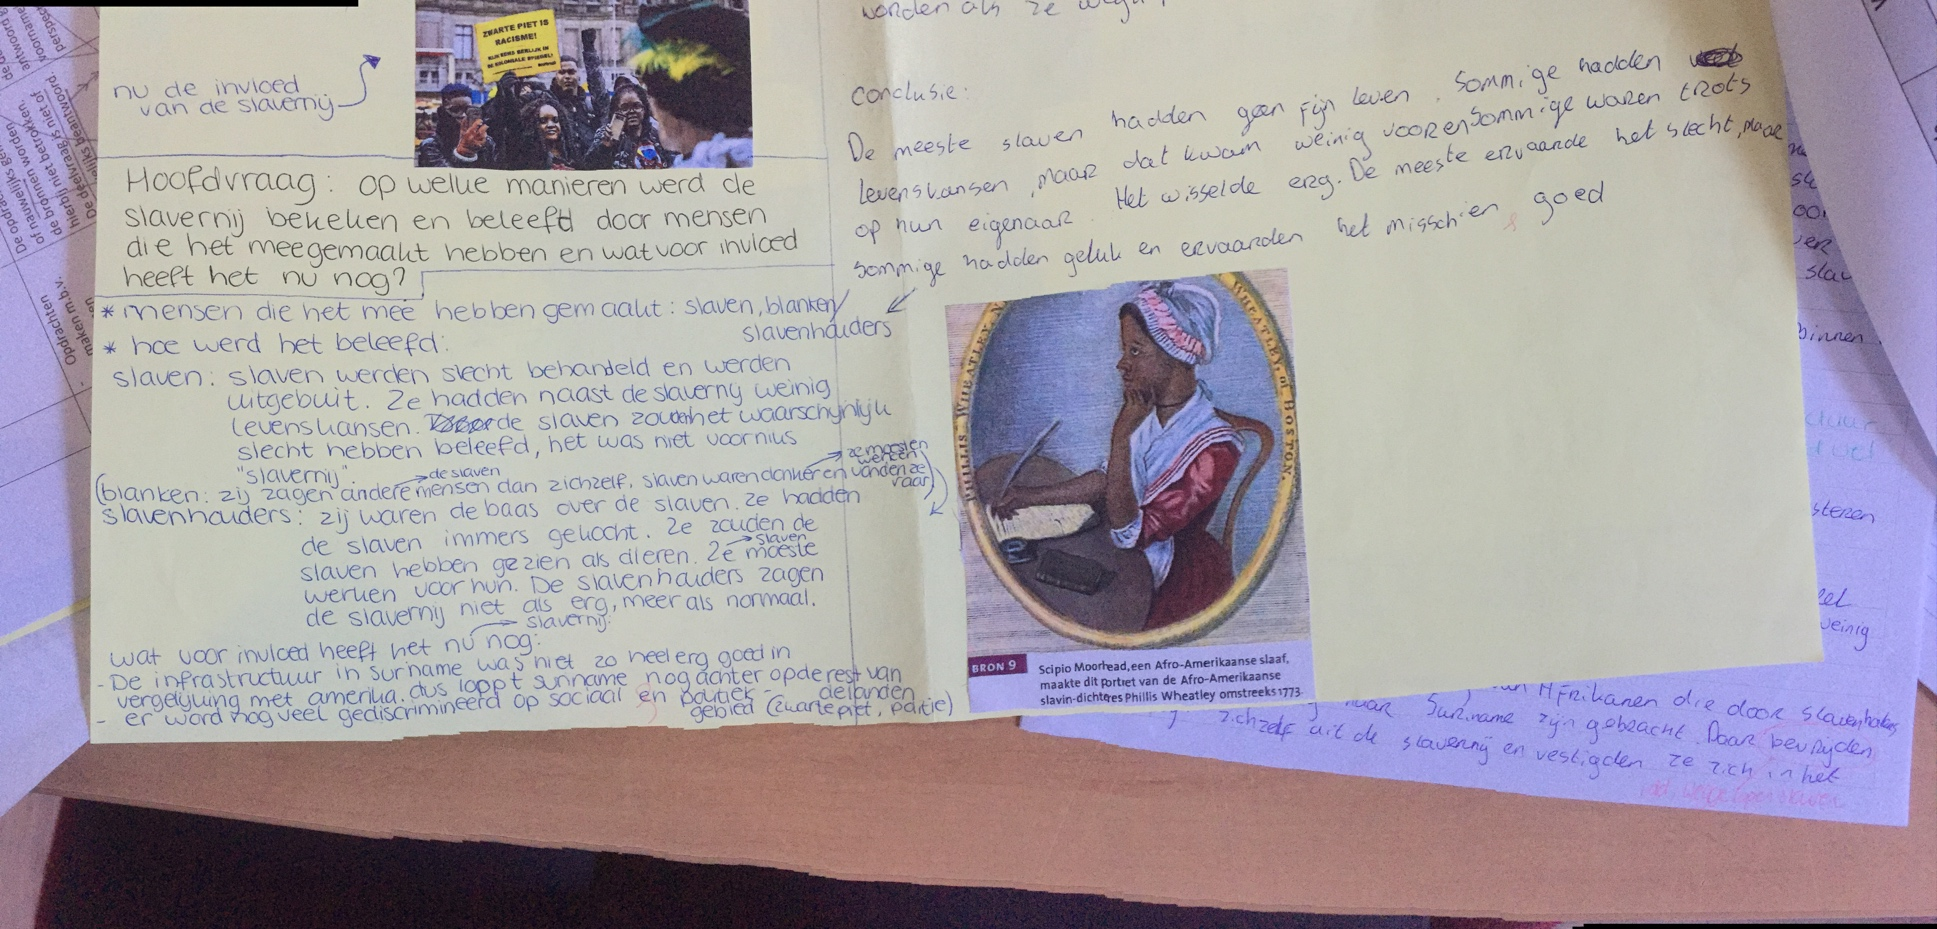 nu de invloed
van de slavernij
ZWARTE PIET IS
RACISME!
Hoofdvraag: op welke manieren werd de
slavernij bekeken en beleefd door mensen
die het meegemaakt hebben en wat voor invloed
heeft het nu nog?
* mensen die het mee hebben gemaakt: slaven, blanken/
slavenhouders
* hoe werd het beleefd:
slaven: slaven werden slecht behandeld en werden
uitgebuit. Ze hadden naast de slaverny weinig
levenskansen. de slaven zouden het waarschijnlijk
slecht hebben beleefd, het was niet voor niks
"slavernij".
de slaven
(blanken: zij zagen andere mensen dan zichzelf, slaven waren donker en vonden ze raar)
ze moesten werken
slavenhouders: zij waren de baas over de slaven. ze hadden
de slaven immers gekocht. Ze zouden de
slaven hebben gezien als dieren. Ze moeste
slaven
werken voor hun. De slavenhouders zagen
de slavernij niet als erg, meer als normaal.
slavernij
wat voor invloed heeft het nu nog:
- De infrastructuur in suriname was niet zo heel erg goed in
vergelijking met amerika. dus loopt suriname nog achter op de rest van
de landen
- er word nog veel gediscrimineerd op sociaal en politiek-
gebied (zwarte piet, partije)
worden als ze
conclusie:
De meeste slaven hadden geen fijn leven. Sommige hadden
levenskansen, maar dat kwam weinig voor en sommige waren trots
op hun eigenaar. Het wisselde erg. De meeste ervaarde het slecht, maar
sommige hadden geluk en ervaarden het misschien goed
PHILLIS WHEATLEY
WHEATLEY, of BOSTON.
BRON 9
Scipio Moorhead, een Afro-Amerikaanse slaaf,
maakte dit portret van de Afro-Amerikaanse
slavin-dichteres Phillis Wheatley omstreeks 1773.
Afrikanen die door slavenhalers
naar Suriname zijn gebracht. Daar bevrijden
zichzelf uit de slavernij en vestigden ze zich in het
binnen
weinig
Opdrachten
maken m.b.v.